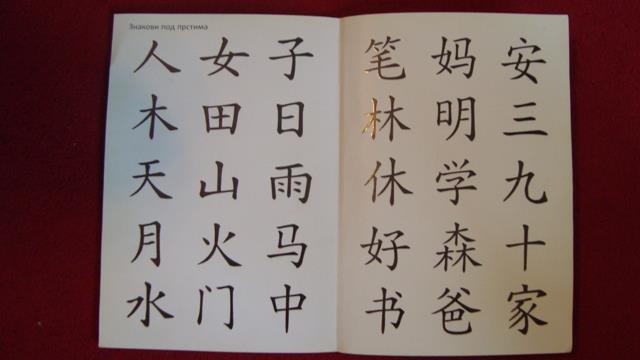 Знакови под прстима
人 女 子
木 田 日
天 山 雨
月 火 马
水 门 中
笔 妈 安
林 明 三
休 学 九
好 森 十
书 爸 家